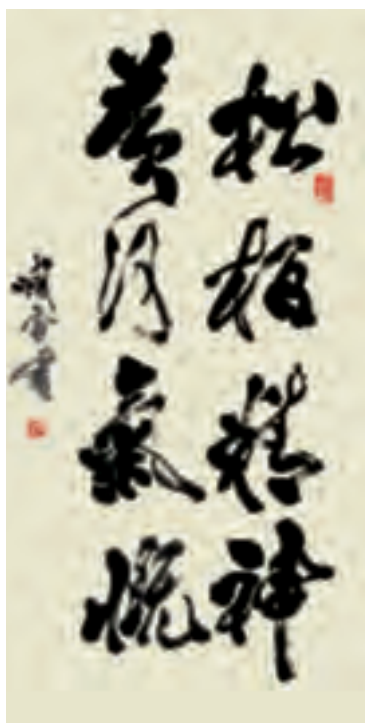 松柏精神
黄河氣概